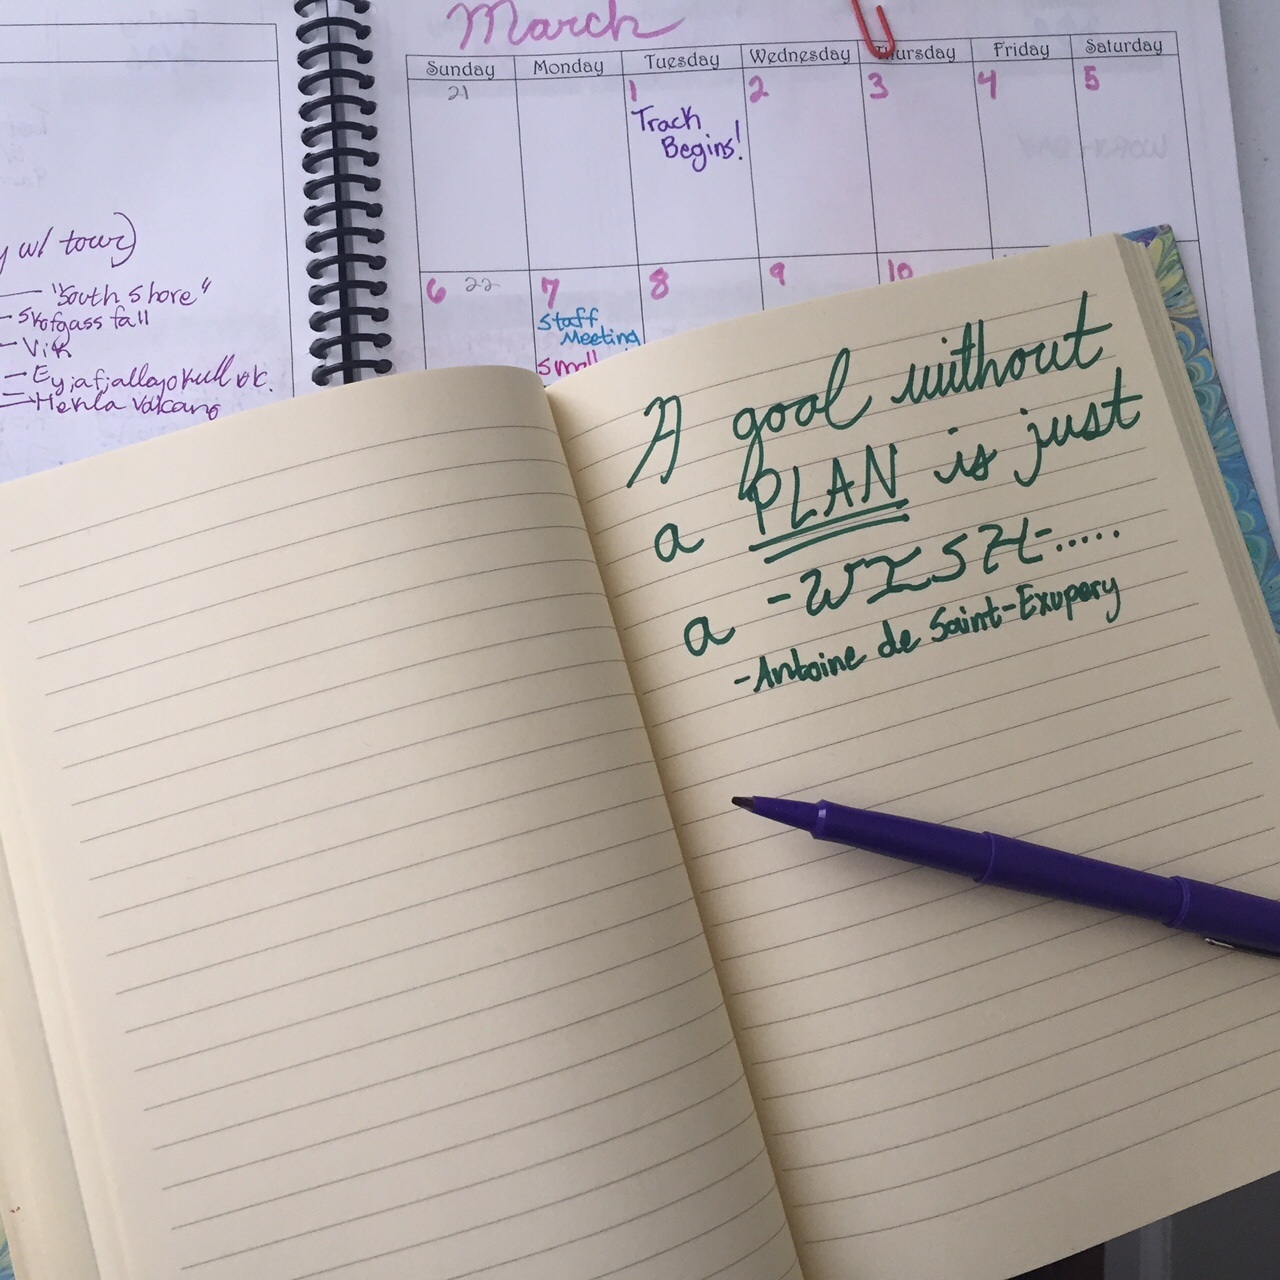 March
Sunday Monday Tuesday Wednesday Thursday Friday Saturday
21 1 2 3 4 5
Track
Begins!
6 22 7 8 9 10
Staff
Meeting
Small
w/ tour)
"South Shore"
Skofgass fall
Vik
Eyjafjallajokull
Hekla Volcano
A goal without
a PLAN is just
a -WISH-.....
-Antoine de Saint-Exupery